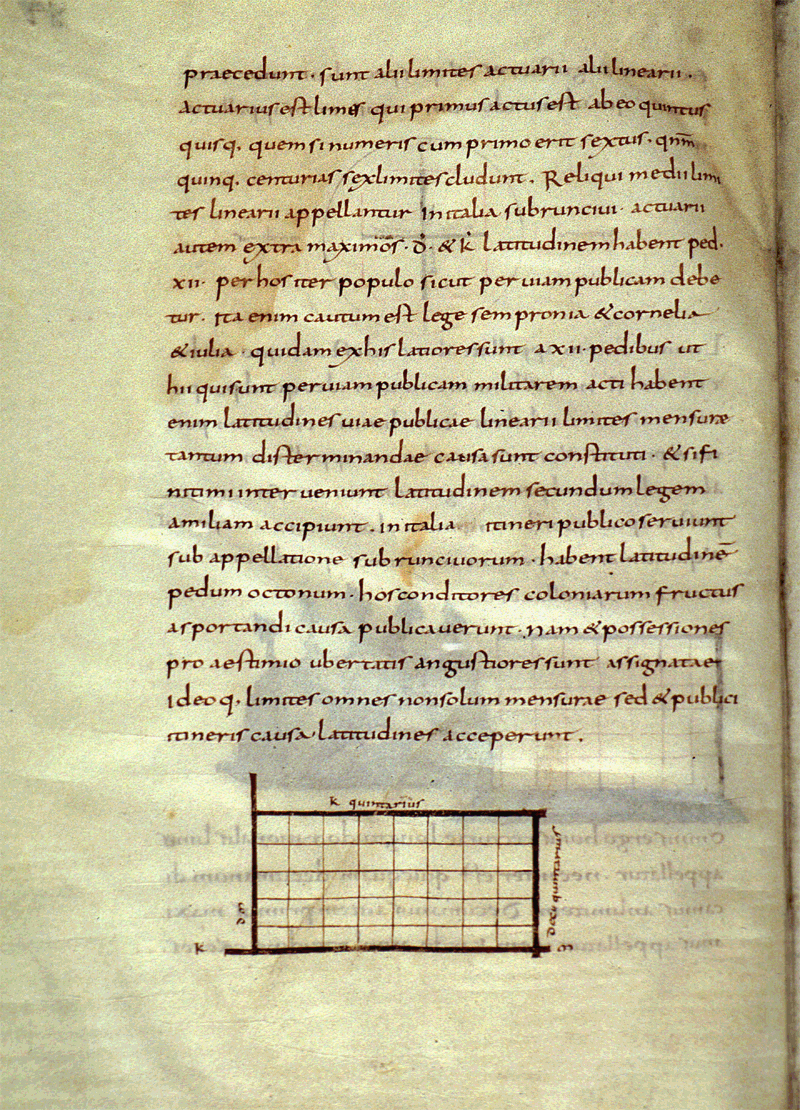 praecedunt · sunt alii limites actuarii alii linearii .
Actuarius est limes qui primus actus est ab eo quintus
quisq. quem si numeris cum primo erit sextus · qnm̄
quinq. centurias sex limites cludunt . Reliqui medii limi
tes linearii appellantur In italia subrunciui · actuarii
autem extra maximos · đ · & k latitudinem habent ped.
xii · per hos iter populo sicut per uiam publicam debe
tur . Ita enim cautum est lege sempronia & cornelia
& iulia · quidam ex his latiores sunt a xii · pedibus ut
hii qui sunt per uiam publicam militarem acti habent
enim latitudines uiae publicae linearii limites mensurae
tantum disterminandae causa sunt constituti · & si fi
nitimi interueniunt latitudinem secundum legem
amiliam accipiunt . in italia itineri publico seruiunt
sub appellatione subrunciuorum · habent latitudinē
pedum octonum · hos conditores coloniarum fructus
asportandi causa publicauerunt · nam & possessiones
pro aestimio ubertatis angustiores sunt assignatae
Ideoq. limites omnes non solum mensurae sed & publici
itineris causa latitudines acceperunt .
k quintarius
k m